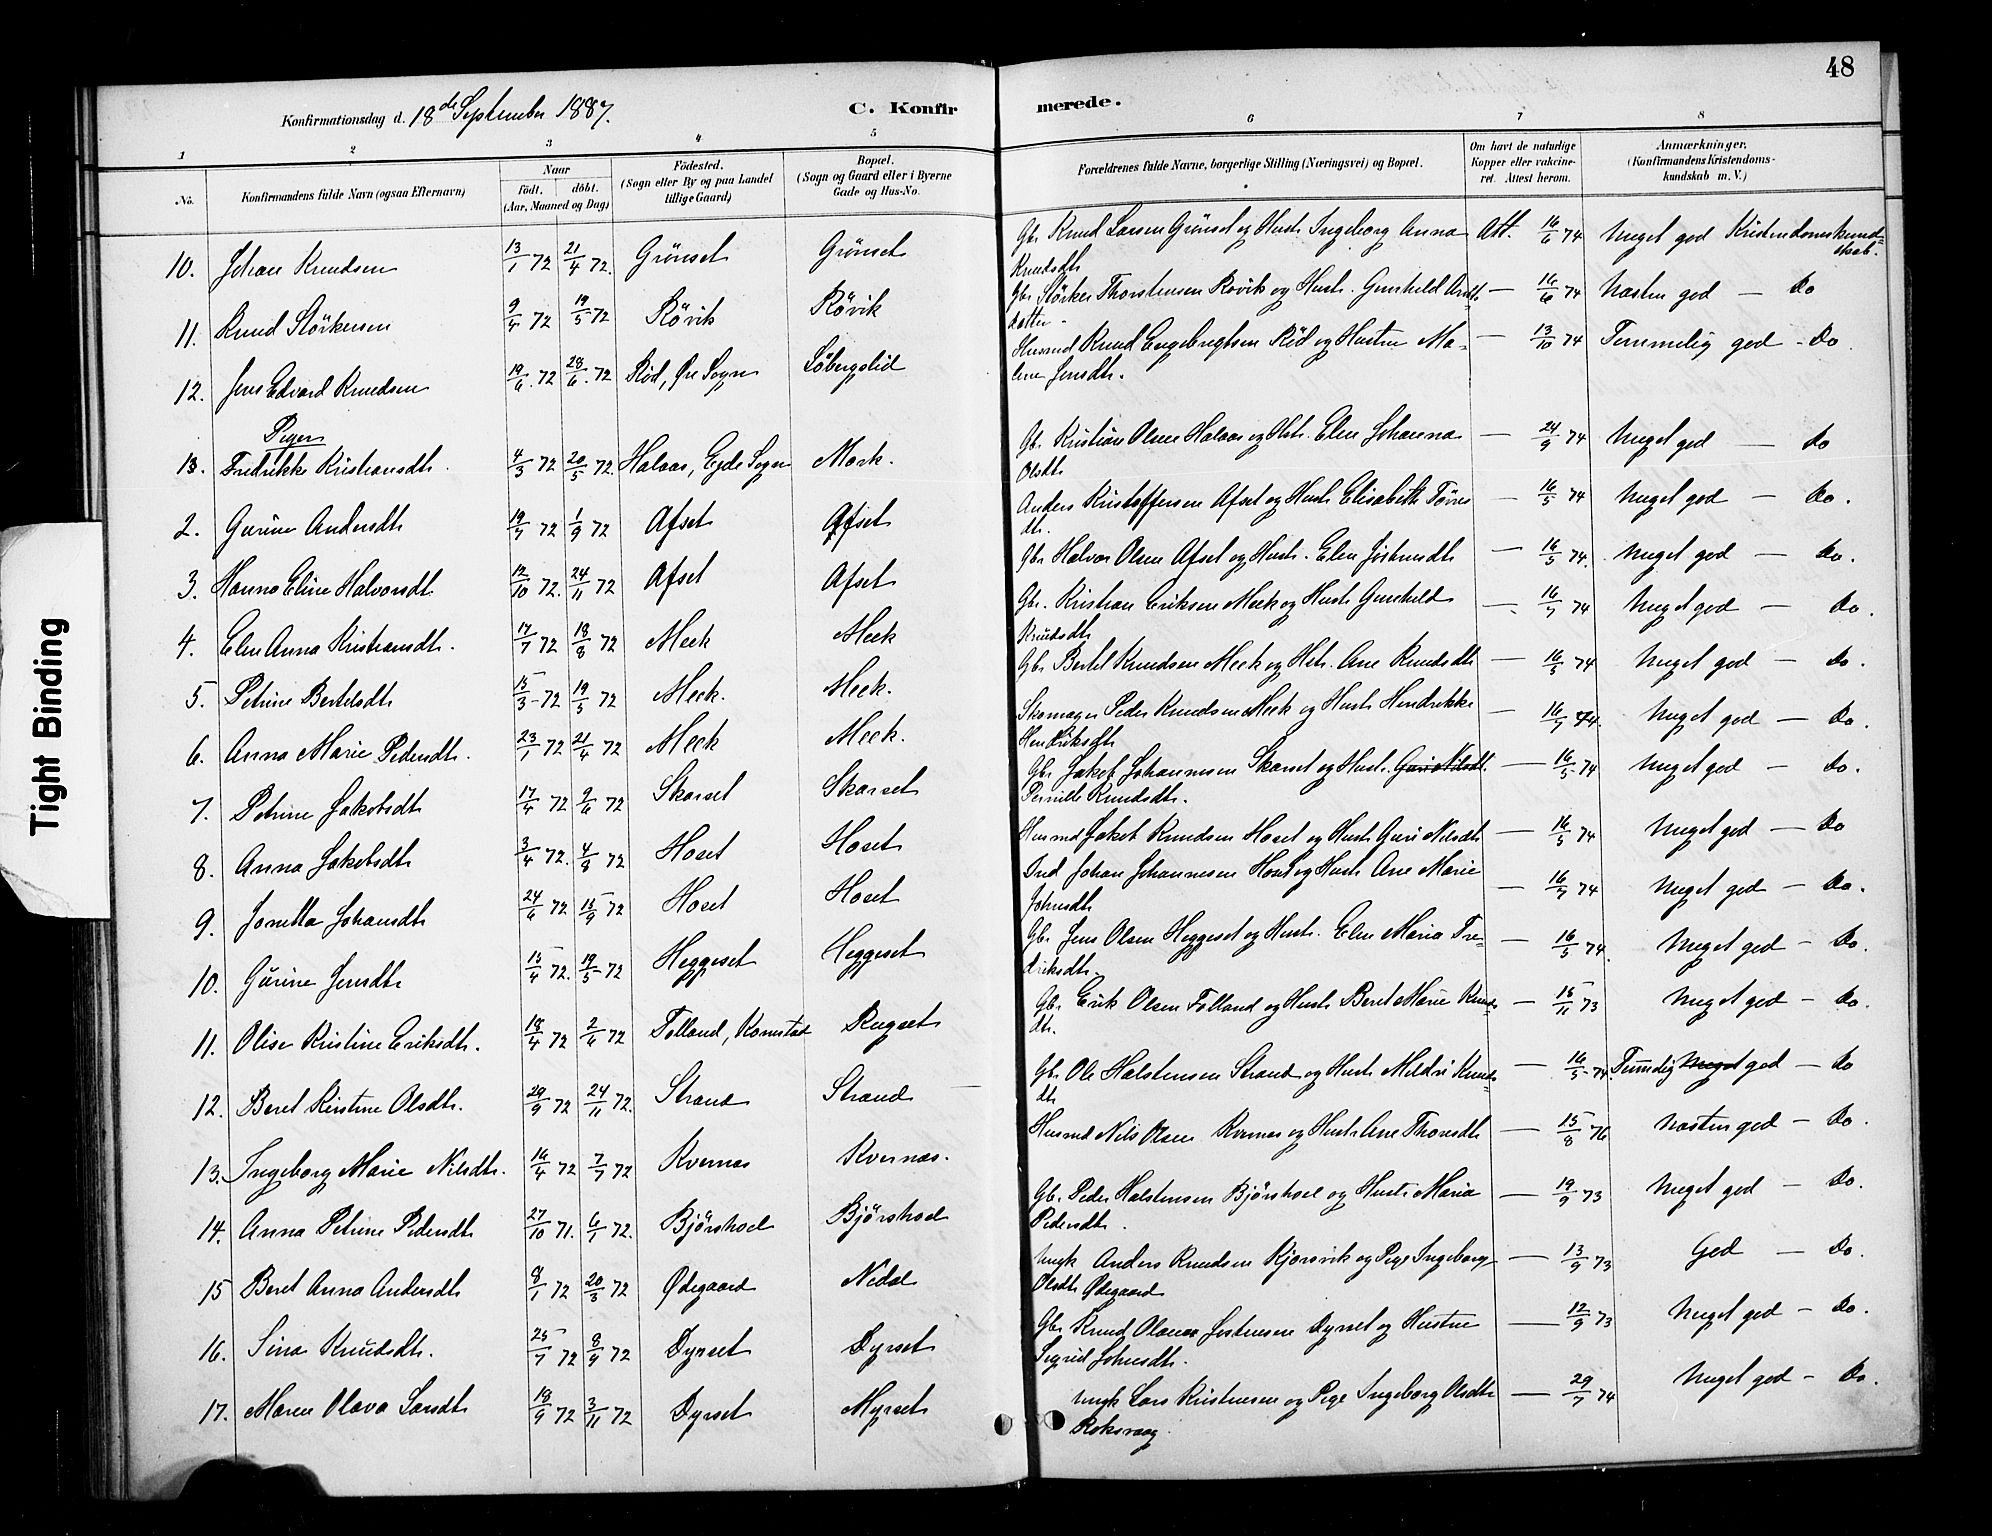 48
Konfirmationsdag d. 18de September 1887.
C. Konfir
merede.
1 2 3 4 5 6 7 8
No. Konfirmandens fulde Navn (ogsaa Efternavn) Naar født. døbt. (Aar, Maaned og Dag) Fødested. (Sogn eller By og paa Landet tillige Gaard) Bopæl. (Sogn og Gaard eller i Byerne Gade og Hus-No. Forældrenes fulde Navne, borgerlige Stilling (Næringsvei) og Bopæl. Om havt de naturlige Kopper eller vakcineret. Attest herom. Anmærkninger. (Konfirmandens Kristendomskundskab m. V.)
10. Johan Knudsen 13/1 72 21/4 72. Grönset Grönset Gbr Knud Larsen Grönset og Hustr Ingeborg Anna Att. 16/6 74 Meget god Kristendomskund=
Knudsdtr skab.
11. Knud Störkersen 9/4 72 19/5 72 Rövik Rövik Gbr Störker Thorstensen Rövik og Hustr. Gunhild Arnts — 16/6 74 Næsten god — Do
datter
12. Jens Edvard Knudsen 19/6. 72 28/6. 72 Röd, Öre Sogn Söbergslid Husmd Knud Engebregtsen Röd og Hustru Ma- — 13/10 74 Temmelig god - Do.
lene Jensdtr.
Piger
13. Fredrikke Kristiansdtr. 4/3 72 20/5 72. Halaas, Eyde Sogn Mork. Gbr. Kristian Olsen Halaas og Hstr. Elen Johanna — 24/9 74 Meget god — Do
Olsdtr
2. Gurine Andersdtr 19/7 72 1/9 72 Afset Afset Anders Kristoffersen Afset og Hustr Elisabeth Törres — 16/5 74 Meget god — Do.
dtr.
3. Hanna Eline Halvorsdtr. 12/10 72. 24/11 72 Afset Afset Gbr Halvor Olsen Afset og Hustr. Elen Jostensdtr — 16/5 74. Meget god — Do.
4. Elen Anna Kristiansdtr. 17/7 72 18/8 72 Meek Meek Gbr. Kristian Eriksen Meek og Hustr Gunhild — 16/7 74 Meget god — Do.
Knudsdtr
5. Petrine Bertelsdtr 15/3 72 19/5 72 Meek. Meek. Gbr Bertel Knudsen Meek og Hstr. Ane Knudsdtr — 16/5 74 Meget god — Do.
6. Anna Marie Pedersdtr. 23/1 72 21/4 72 Meek Meek. Skomager Peder Knudsen Meek og Hustr Hendrikke — 16/7 74. Meget god — Do.
Hendriksdtr
7. Petrine Jakobsdtr 17/4 72 9/6 72 Skarset Skarset Gbr Jakob Johannesen Skarset og Hustr. Guri Nilsdtr. — 16/5 74 Meget god — Do.
Pernille Knudsdtr.
8. Anna Jakobsdtr 3/4 72. 4/8 72 Hoset Hoset Husmd Jakob Knudsen Hoset og Hustr Guri Nilsdtr — 16/5 74 Meget god — Do
9. Jonetta Johansdtr 24/6 72 15/9 72 Hoset Hoset Ind Johan Johannesen Hoset og Hustr Ane Marie — 16/7 74 Meget god — Do.
Johnsdtr
10. Gurine Jensdtr 15/4 72. 19/5 72 Heggeset Heggeset Gbr Jens Olsen Heggeset og Hustr. Elen Maria Fre- — 16/5 74 Meget god — Do.
driksdtr.
11. Olise Kristine Eriksdtr. 18/4 72 2/6 72 Folland, Kornstad Rugset Gbr Erik Olsen Folland og Hustr Beret Marie Knuds — 15/11 73 Meget god — Do.
dtr.
12. Beret Kirstine Olsdtr. 29/9 72 24/11 72. Strand Strand Gbr. Ole Halstensen Strand og Hustr Mildri Knuds — 16/5 74. Temmelig Meget god — Do
dtr
13. Ingeborg Marie Nilsdtr. 16/4 72 7/7 72 Kvernes Kvernæs. Husmd Nils Olsen Kvernes og Hustr Ane Thoresdtr — 15/8 76 Næsten god — Do.
14. Anna Petrine Pedersdtr 27/10 71. 6/1 72. Bjørshoel Bjørshoel Gbr. Peder Halstensen Bjørshoel og Hustr Maria — 19/9 73 Meget god — Do.
Pedersdtr.
15 Beret Anna Andersdtr 8/1 72 20/3 72 Ødegaard Nedal Ungk Anders Knudsen Kjørsvik og Pige Ingeborg — 13/9 73 God — Do.
Olsdtr Ødegaard
16. Sina Knudsdtr. 25/7 72 8/9 72 Dyrset Dyrset Gbr Knud Olaus Jostensen Dyrset og Hustru — 12/9 73 Meget god — Do.
Sigrid Johnsdtr.
17. Maren Olava Larsdtr 18/9 72 3/11 72 Dyrset Myrset Ungk Lars Kristensen og Pige Ingeborg Olsdtr — 29/7 74 Meget god — Do.
Roksvaag.
Tight Binding